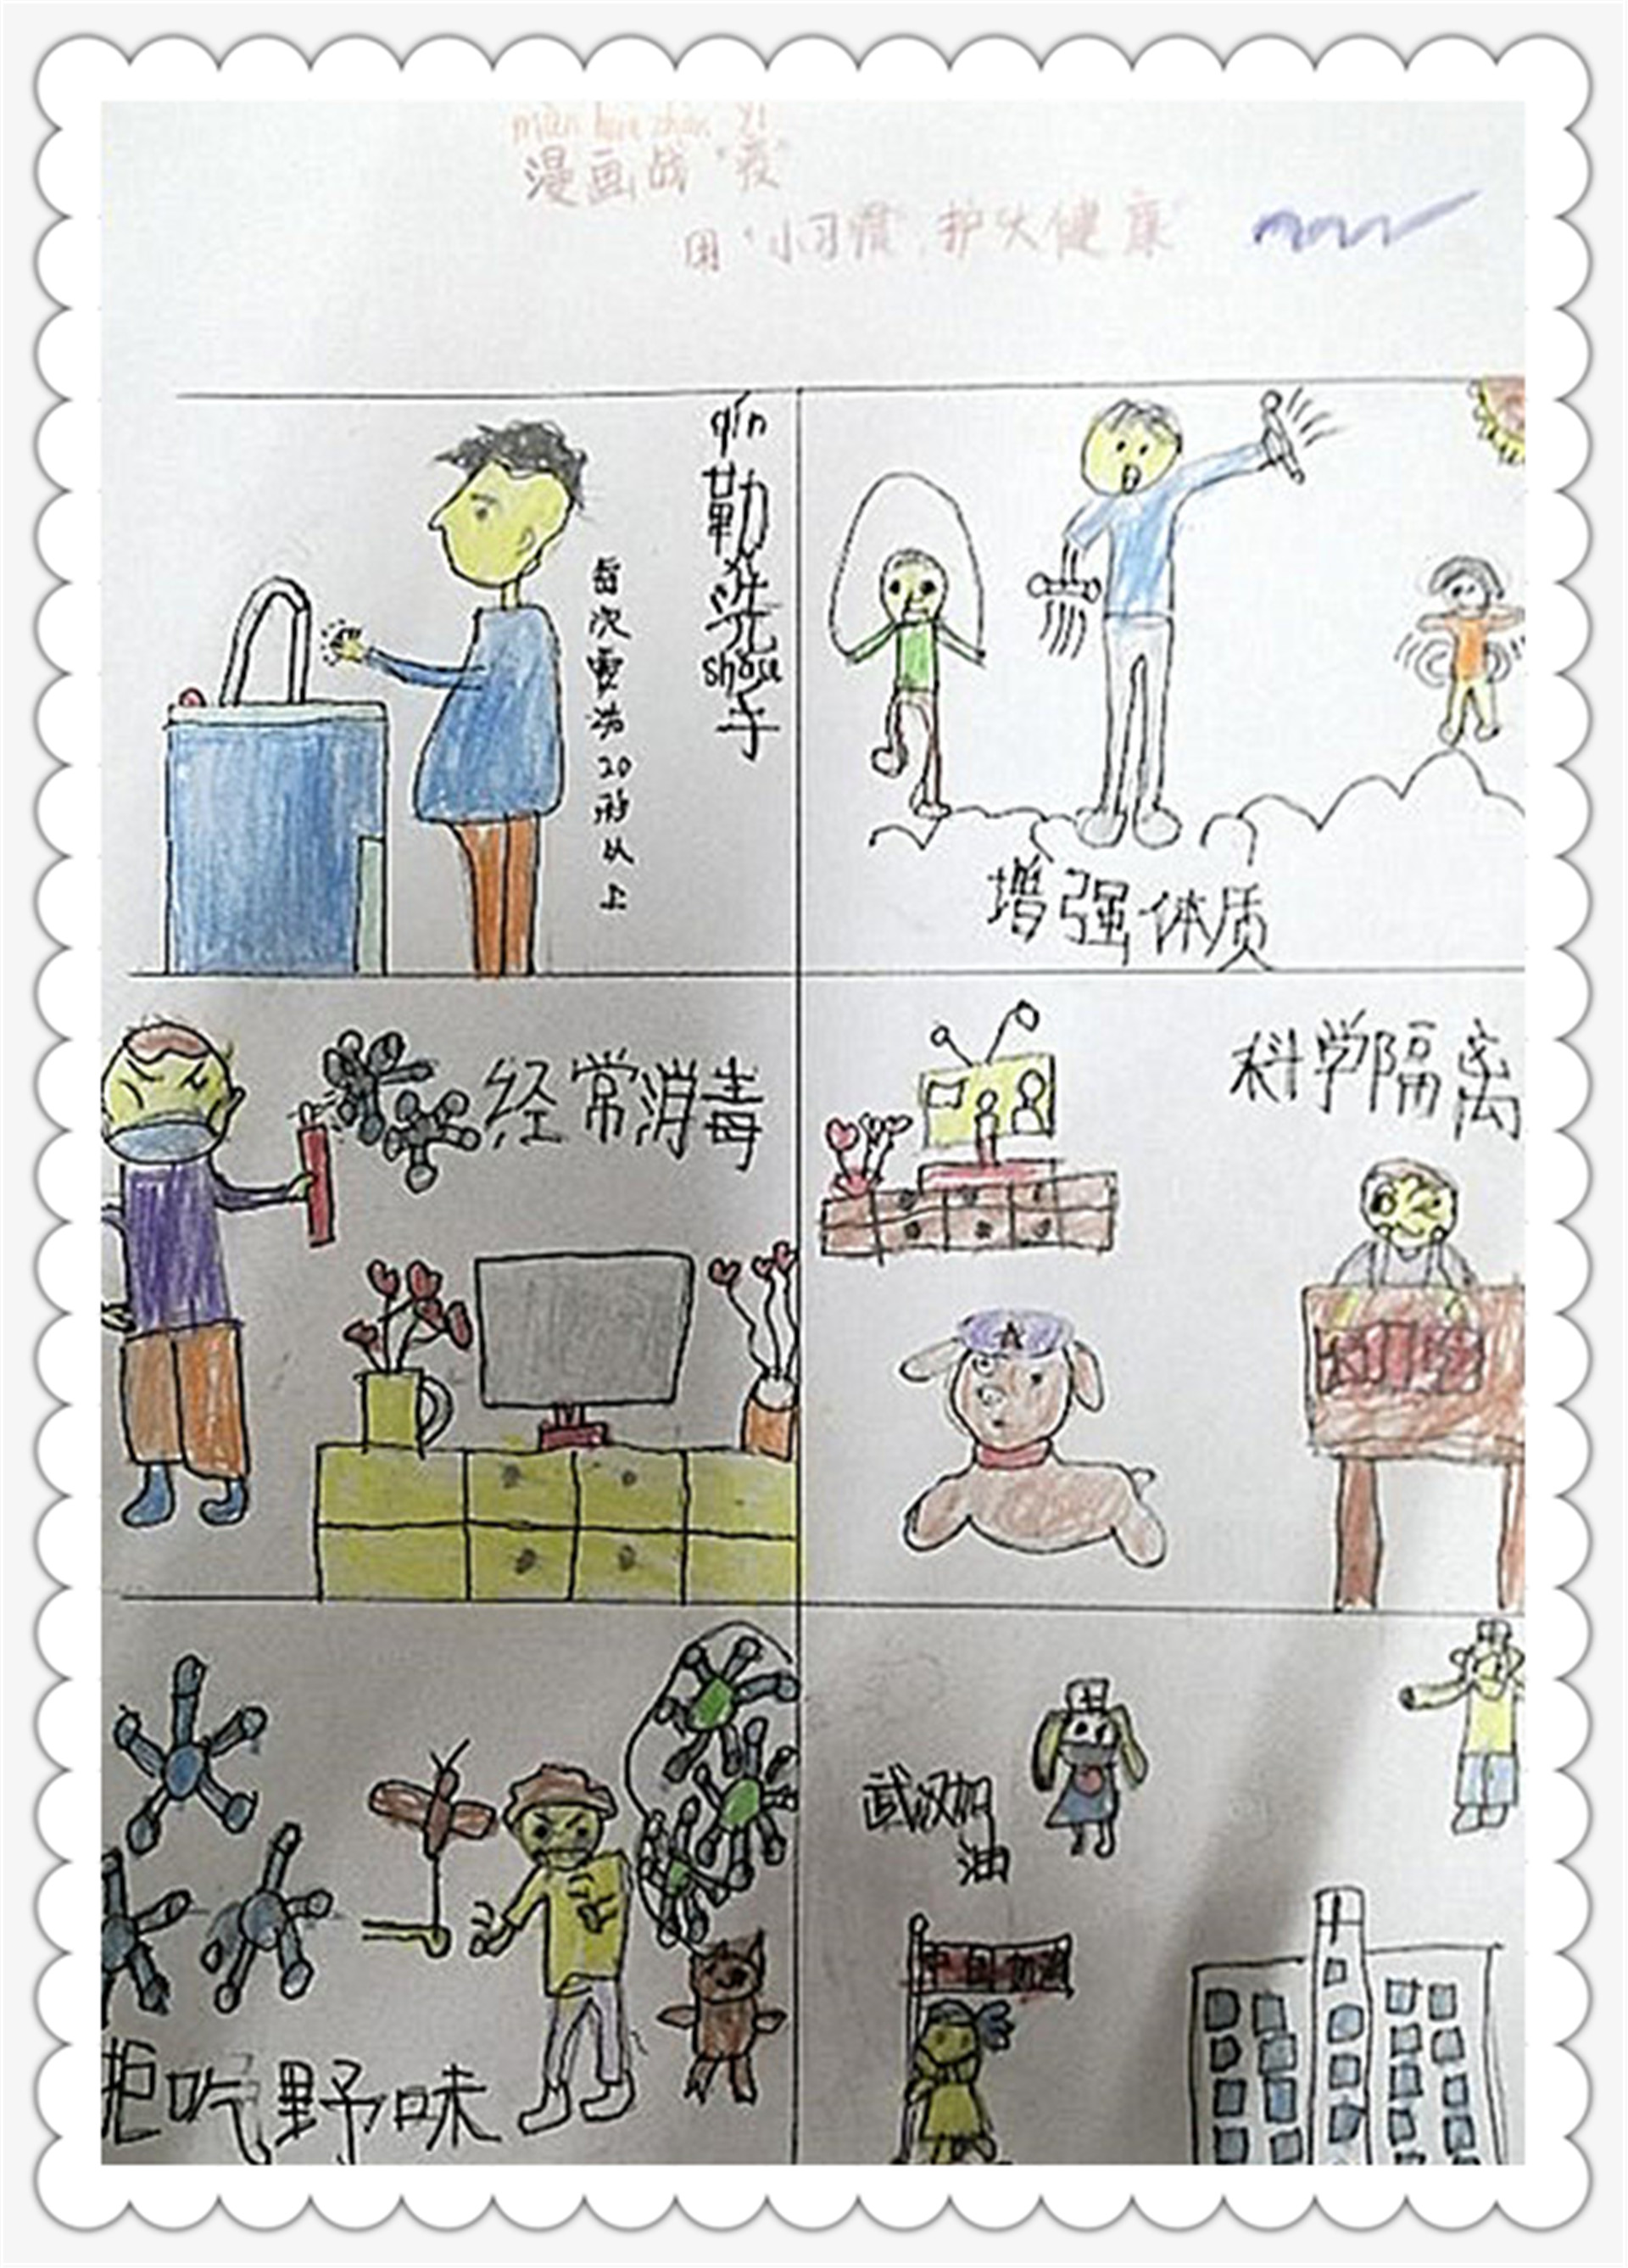 màn huà zhàn yì
漫画战"疫"
用"小习惯",护大健康
qín
勤洗
shǒu
手
每次要洗20秒以上
增强体质
经常消毒
科学隔离
拒吃野味
武汉加
油